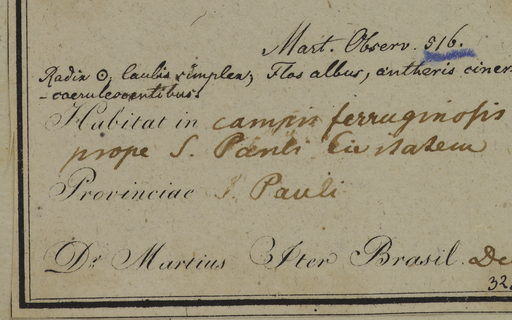 Mart. Observ. 516.
Radix ⊙, Caulis simplex, Flos albus, antheris ciner
-caerulescentibus.
Habitat in campis ferruginosis
prope S. Pauli Civitatem
Provinciae S. Pauli
Dr. Martius Iter Brasil. De
32